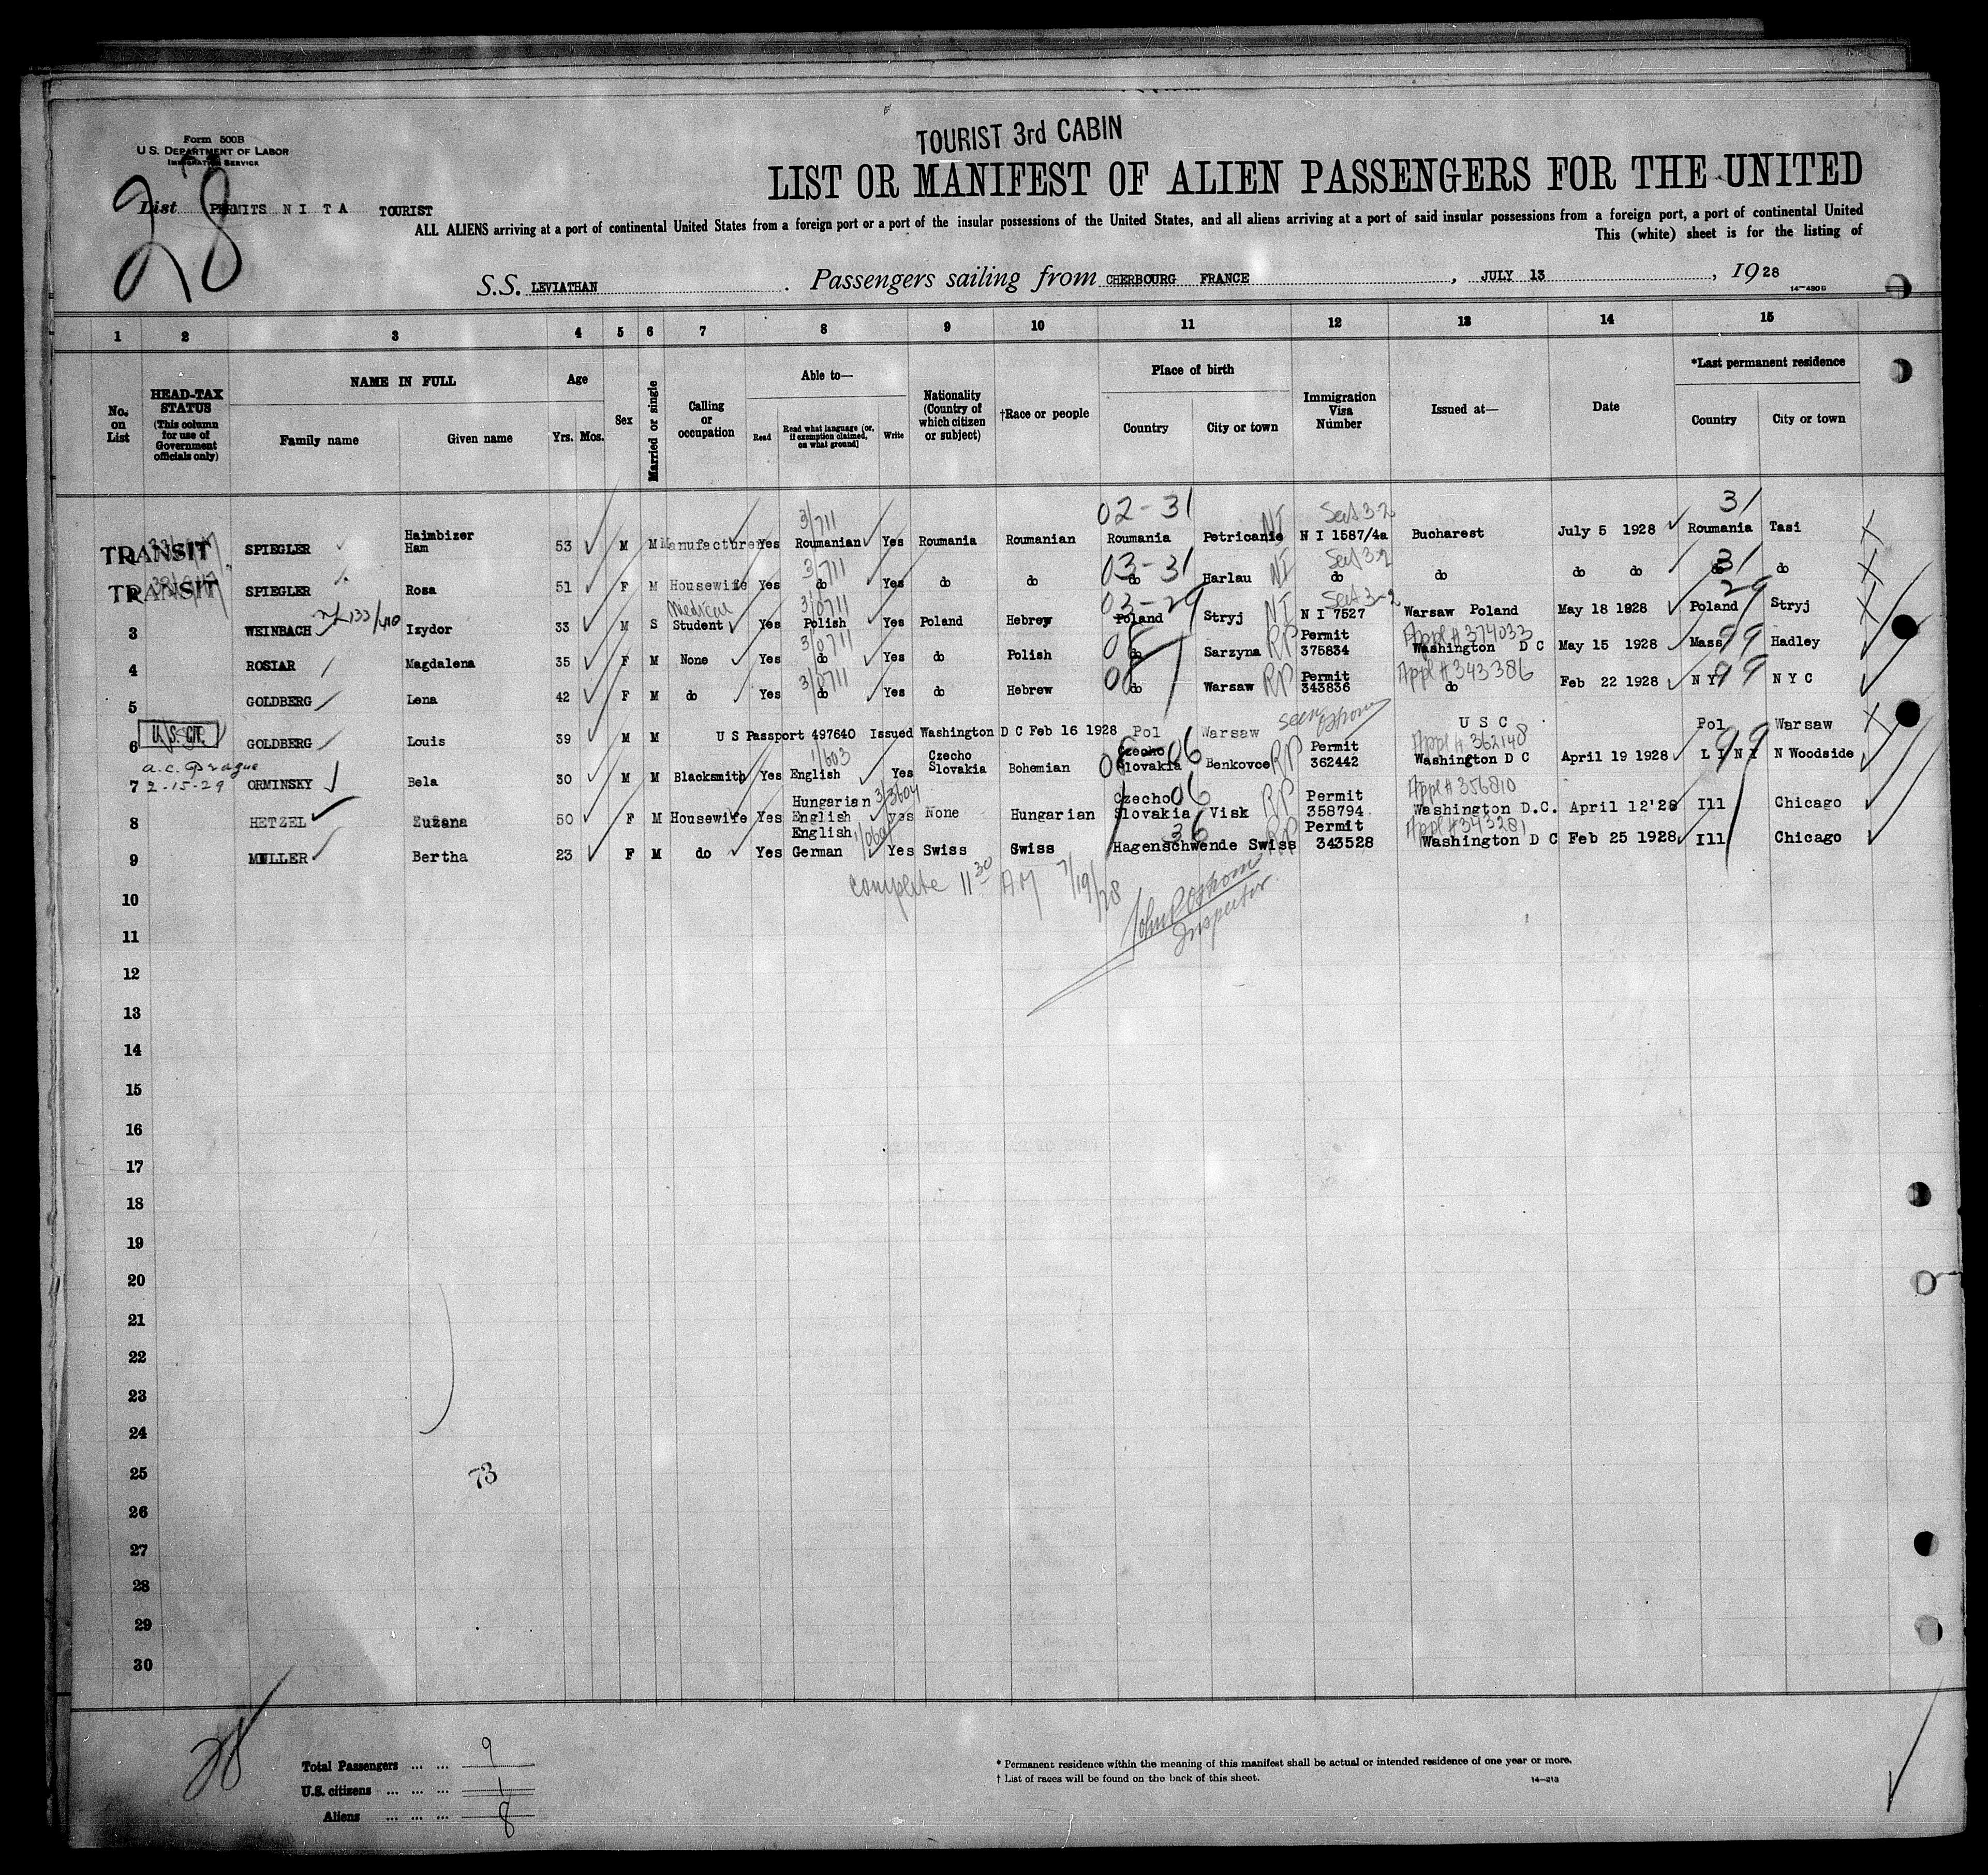 TOURIST 3rd CABIN
Form 500B
U. S. DEPARTMENT OF LABOR
IMMIGRATION SERVICE
28
LIST OR MANIFEST OF ALIEN PASSENGERS FOR THE UNITED
List PERMITS N I T A TOURIST
ALL ALIENS arriving at a port of continental United States from a foreign port or a port of the insular possessions of the United States, and all aliens arriving at a port of said insular possessions from a foreign port, a port of continental United
This (white) sheet is for the listing of
S.S. LEVIATHAN . Passengers sailing from CHERBOURG FRANCE , JULY 13 , 1928
14—480 B
1 2 3 4 5 6 7 8 9 10 11 12 13 14 15
No. on List
HEAD-TAX STATUS (This column for use of Government officials only)
NAME IN FULL
Family name Given name
Age
Yrs. Mos.
Sex
Married or single
Calling or occupation
Able to—
Read Read what language (or, if exemption claimed, on what ground) Write
Nationality (Country of which citizen or subject)
†Race or people
Place of birth
Country City or town
Immigration Visa Number
Issued at—
Date
*Last permanent residence
Country City or town
02-31 31
3/711 NI Sect 3-2
TRANSIT SPIEGLER Haimbizer Ham 53 M M Manufacturer Yes Roumanian Yes Roumania Roumanian Roumania Petricanie N I 1587/4a Bucharest July 5 1928 Roumania Tasi
3/711 03-31 NI Sect 3-2 31
TRANSIT SPIEGLER Rosa 51 F M Housewife Yes do Yes do do do Harlau do do do do do do
Medical 3/0711 03-29 NI Sect 3-2 29
3 WEINBACH Izydor 33 M S Student Yes Polish Yes Poland Hebrew Poland Stryj N I 7527 Warsaw Poland May 18 1928 Poland Stryj
3/0711 RP Appl # 374033 99
4 ROSIAR Magdalena 35 F M None Yes do Yes do Polish do Sarzyna Permit 375834 Washington D C May 15 1928 Mass Hadley
3/0711 RP Appl # 343386 99
5 GOLDBERG Lena 42 F M do Yes do Yes do Hebrew do Warsaw Permit 343836 do Feb 22 1928 N Y N Y C
6 U. S. CIT. GOLDBERG Louis 39 M M U S Passport 497640 Issued Washington D C Feb 16 1928 Pol Warsaw seen U S C Pol Warsaw
a.c. Prague
2-15-29
1/603 06 RP Appl # 362148 99
7 ORMINSKY Bela 30 M M Blacksmith Yes English Yes Czecho Slovakia Bohemian Czecho Slovakia Benkovce Permit 362442 Washington D C April 19 1928 L I N Y N Woodside
3/3604 06 RP Appl # 356810
8 HETZEL Zuzana 50 F M Housewife Yes Hungarian English yes None Hungarian Czecho Slovakia Visk Permit 358794 Washington D.C. April 12'28 Ill Chicago
36 RP Appl # 343281
9 MULLER Bertha 23 F M do Yes English German Yes Swiss Swiss Hagenschwende Swiss Permit 343528 Washington D C Feb 25 1928 Ill Chicago
complete 11 30 AM 7/19/28
Inspector
10
11
12
13
14
15
16
17
18
19
20
21
22
23
24
25
26
27
28
29
30
73
28
Total Passengers ... ... 9
U.S. citizens ... ... ... 1
Aliens ... ... ... 8
* Permanent residence within the meaning of this manifest shall be actual or intended residence of one year or more.
† List of races will be found on the back of this sheet.
14—213